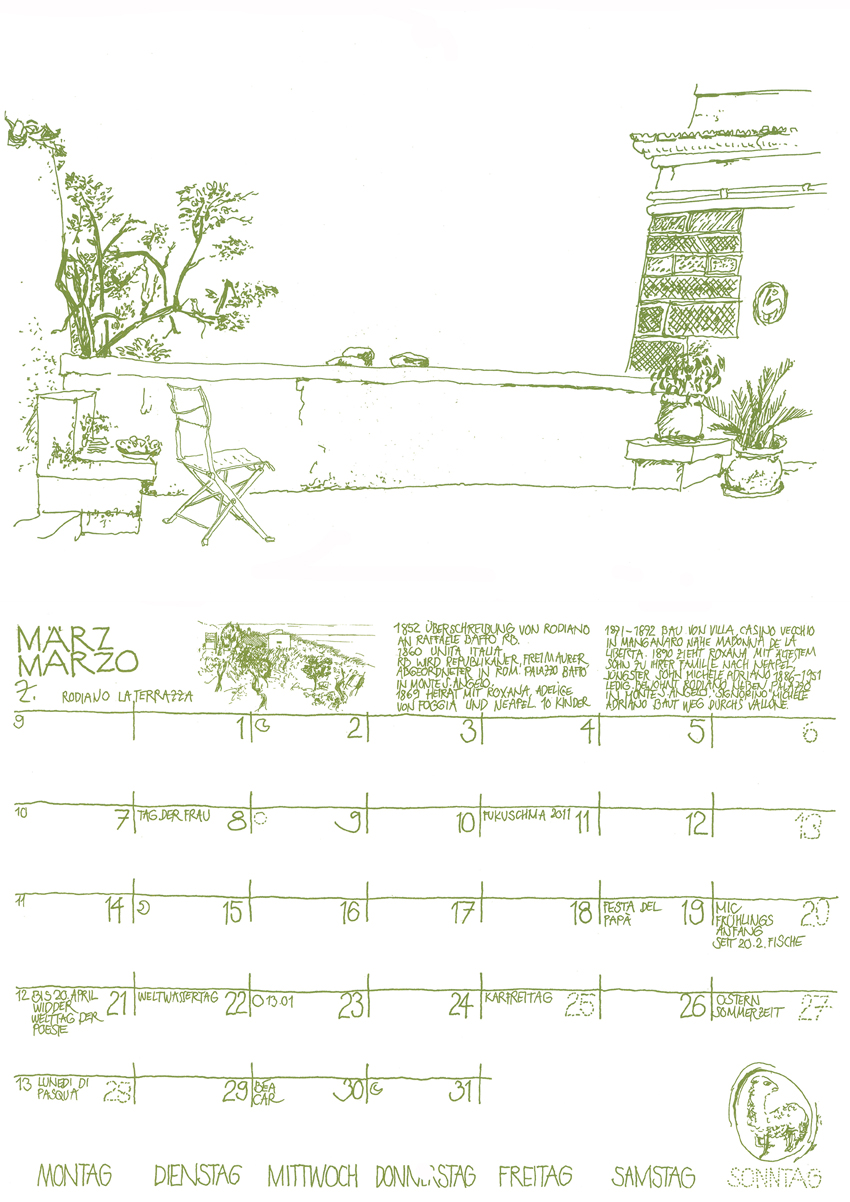 MÄRZ
MARZO
Z. RODIANO LA TERRAZZA
1852 ÜBERSCHREIBUNG VON RODIANO
AN RAFFAELE BAFFO RD.
1860 UNITA ITALIA
RD. WIRD REPUBLIKANER, FREIMAURER
ABGEORDNETER IN ROM. PALAZZO BAFFO
IN MONTE S. ANGELO.
1869 HEIRAT MIT ROXANA, ADELIGE
VON FOGGIA UND NEAPEL 10 KINDER
1891-1892 BAU VON VILLA CASINO VECCHIO
IN MANGANARO NAHE MADONNA DE LA
LIBERTA. 1890 ZIEHT ROXANA MIT ÄLTESTEM
SOHN ZU IHRER FAMILIE NACH NEAPEL,
JÜNGSTER SOHN MICHELE ADRIANO 1886-1951
LEDIG BEWOHNT RODIANO LIEBEN PALAZZO
IN MONTE S. ANGELO. SIGNORINO MICHELE
ADRIANO BAUT WEG DURCHS VALLONE.
9 1 2 3 4 5 6
10 7 TAG DER FRAU 8 9 10 FUKUSCHMA 2011 11 12 13
11 14 15 16 17 18 FESTA DEL 19 MIC 20
PAPÀ FRÜHLINGS
ANFANG
SEIT 20.2. FISCHE
12 BIS 20. APRIL 21 WELTWASSERTAG 22 13.01 23 24 KARFREITAG 25 26 OSTERN 27
WIDDER SOMMERZEIT
WELTTAG DER
POESIE
13 LUNEDI DI 28 29 BEA 30 31
PASQUA CAR
MONTAG DIENSTAG MITTWOCH DONNERSTAG FREITAG SAMSTAG SONNTAG